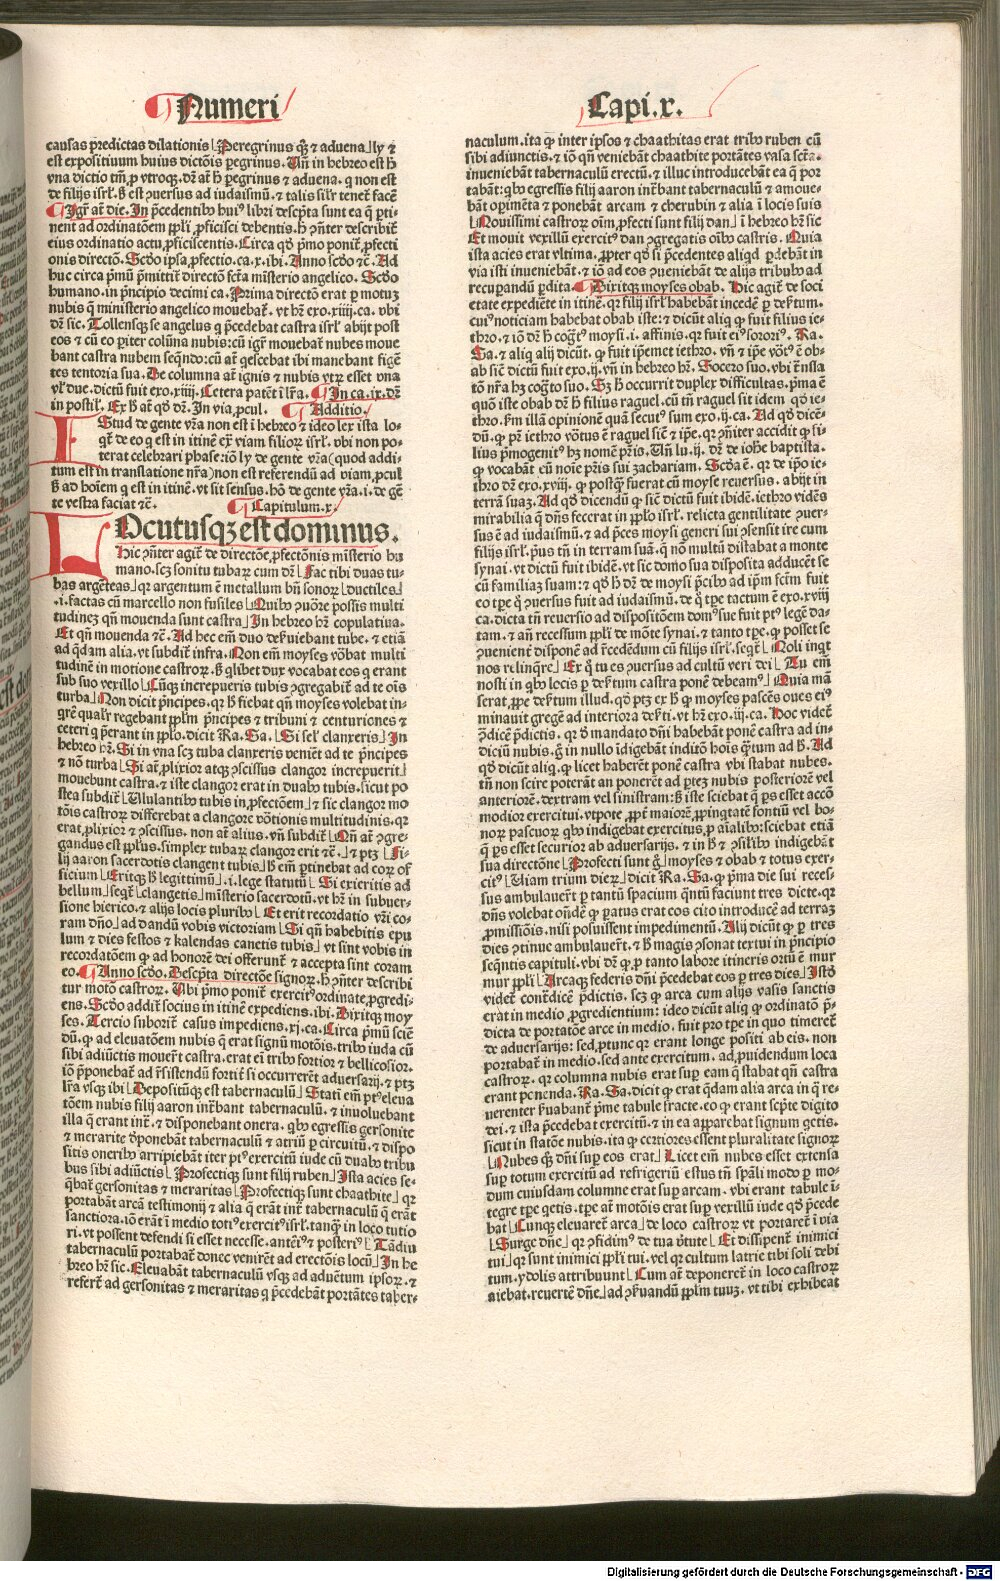 Numeri
Capi.x.
causas predictas dilationis Peregrinus qȝ ⁊ aduena ly ⁊
est expositiuum huius dictõis pegrinus. Un̄ in hebreo est h̄
vna dictio tm̄ ꝓ vtroqȝ. dr̄ at̄ h̄ pegrinus ⁊ aduena. q non est
de filijs isrl̄. s̄ est ꝯuersus ad iudaismū. ⁊ talis silr̄ tenet̄ facē
Igr̄ at̄ die. In p̄cedentibꝰ huiꝰ libri descp̄ta sunt ea q̄ pti-
nent ad ordinatōem ppl̄i ꝓficisci debentis. h̄ ꝯn̄ter describit̄
eius ordinatio actu ꝓficiscentis. Circa qd̄o pͥmo ponit̄ ꝓfecti
onis directō. Scd̄o ipsa ꝓfectio. ca. x. ibi. Anno scd̄o ⁊c̄. Ad
huc circa pͥmū pͥmittit̄ directō scta mīsterio angelico. Scd̄o
humano. in pͥncipio decimi ca. Prima directō erat p motuȝ
nubis q̄ ministerio angelico mouebat̄. vt hr̄ exo. xiiij. ca. vbi
dr̄ sic. Tollensqȝ se angelus q p̄cedebat castra isrl̄ abijt post
eos ⁊ cū eo pariter colūna nubis: cū igr̄ mouebat̄ nubes moue
bant castra nubem seqn̄do: cū at̄ qescebat ibi manebant figen̄
tes tentoria sua. De columna at̄ ignis ⁊ nubis vtrꝫ esset vna
vl̄ due. dictū fuit exo. xiiij. Cetera patēt ī lr̄a. In ca. ix. dr̄
in postil. Ex h̄ at̄ qd̄ dr̄. In via ꝓcul. Additio.
IStud de gente vr̄a non est ī hebreo ⁊ ideo ler̄ ista lo-
qt̄ de eo q est in itinē ex̄ viam filiorꝫ isrl̄. vbi non po-
terat celebrari phase: iō ly de gente vr̄a (quod addi-
tum est in translatione nr̄a) non est referendū ad viam ꝓcul
s̄ ad hoīem q est in itinē. vt sit sensus. hō de gente vr̄a. i. de gē
te vestra faciat ⁊c̄. Capitulum. x.
LOcutusqȝ est dominus.
Hic ꝯn̄ter agit̄ de directōe ꝓfectōnis mīsterio hu
mano. scȝ sonitu tubarꝫ cum dr̄ Fac tibi duas tu-
bas argēteas qr argentum ē metallum bn̄ sonorꝫ ductiles
. i. factas cū marcello non fusiles Quibꝰ ꝯuocare possis multi
tudinez qn̄ mouenda sunt castra In hebreo hr̄ copulatiua.
Et qn̄ mouenda ⁊c̄. Ad hec em̄ duo deseruiebant tube. ⁊ etiā
ad qdam alia. vt subdit̄ infra. Non em̄ moyses vocabat multi
tudinē in motione castrorꝫ. s̄ qlibet dux vocabat eos q erant
sub suo vexillo Cūqȝ increpueris tubis ꝯgregabit̄ ad te oīs
turba Non dicit pͥncipes. qr h̄ fiebat qn̄ moyses volebat in-
grē qualr̄ regebant ppl̄m pͥncipes ⁊ tribuni ⁊ centuriones ⁊
ceteri q p̄erant in ppl̄o. dicit Ra. Sa. Si sel̄ clanxeris In
hebreo hr̄. Si in vna scȝ tuba clanxeris veniēt ad te pͥncipes
⁊ nō turba Si at̄ ꝓlixior atqȝ ꝯscissus clangor increpuerit
mouebunt castra. ⁊ iste clangor erat in duabꝰ tubis. sicut po
stea subdit̄ Ululantibꝰ tubis in ꝓfectōem ⁊ sic clangor mo
tōis castrorꝫ differebat a clangore vocatōnis multitudinis. qr
erat ꝓlixior ⁊ ꝯscissus. non at̄ alius. vn̄ subdit̄ Qn̄ at̄ ꝯgre-
gandus est ppl̄us. simplex tubarꝫ clangor erit ⁊c̄. ⁊ ptȝ Fi-
lij aaron sacerdotis clangent tubis h̄ em̄ ptinebat ad eorꝫ of
ficium Eritqȝ h̄ legittimū . i. lege statutū Si exieritis ad
bellum seqt̄ clangetis mīsterio sacerdotū. vt hr̄ in subuer-
sione hierico. ⁊ alijs locis pluribꝰ Et erit recordatio vr̄i co-
ram dn̄o ad dandū vobis victoriam Si qn̄ habebitis epu
lum ⁊ dies festos ⁊ kalendas canetis tubis vt sint vobis in
recordatōem qꝫ ad honorē dei offerunt̄ ⁊ accepta sint coram
eo. Anno scd̄o. Descp̄ta directōe signorꝫ. h̄ ꝯn̄ter describi
tur motō castrorꝫ. Ubi pͥmo ponit̄ exercitꝰ ordinate ꝓgredi-
ens. Scd̄o addit̄ socius in itinē expediens. ibi. Dixitqȝ moy
ses. Tercio subdit̄ casus impediens. xj. ca. Circa pͥmū sciē
dū. qꝫ ad eleuatōem nubis q̄ erat signū motōis. tribꝰ iuda cū
sibi adiūctis mouent castra. erat ei tribꝰ fortior ⁊ bellicosior.
iō p̄ponebat̄ ad r̄sistendū fortit̄ si occurrerēt aduersarij. ⁊ ptȝ
lr̄a vsqȝ ibi Depositūqȝ est tabernaculū Statī em̄ pꝰ eleua
tōem nubis filij aaron int̄bant tabernaculū. ⁊ inuoluebant
illa q̄ erant int̄. ⁊ disponebant onera. qbꝰ egressis gersonite
⁊ merarite deponebāt tabernaculū ⁊ atriū p circuitū. ⁊ dispo
sitis oneribꝰ arripiebāt iter pꝰ exercitū iude cū duabꝰ tribu
bus sibi adiūctis Profectiqȝ sunt filij ruben Ista acies se-
qbat̄ gersonitas ⁊ meraritas Profectiqȝ sunt chaathite qr
portabāt arcā testimonij ⁊ alia q̄ erāt int̄ tabernaculū q̄ erāt
sanctiora. iō erāt ī medio totꝰ exercitꝰ isrl̄. tanqȝ in loco tutio
ri. vt possent defendi si esset necesse. anteriꝰ ⁊ posteriꝰ Tādiu
tabernaculū portabat̄ donec venirēt ad erectōis locū In he
breo hr̄ sic. Eleuabāt tabernaculū vsqȝ ad aduētum ipsorꝫ. ⁊
refert̄ ad gersonitas ⁊ meraritas q p̄cedebāt portātes taber-
naculum. ita qꝫ inter ipsos ⁊ chaathitas erat tribꝰ ruben cū
sibi adiunctis. ⁊ iō qn̄ veniebāt chaathite portātes vasa sctā.
inueniebāt tabernaculū erectū. ⁊ illuc introducebāt ea q̄ por
tabāt: qbꝰ egressis filij aaron int̄bant tabernaculū ⁊ amoue-
bāt opimēta ⁊ ponebāt arcam ⁊ cherubin ⁊ alia ī locis suis
Nouissimi castrorꝫ oīm ꝓfecti sunt filij dan ī hebreo hr̄ sic
Et mouit vexillū exercitꝰ dan ꝯgregatis oībꝰ castris. Quia
ista acies erat vltima. ꝓpter qd̄ si p̄cedentes aliqd pdebāt in
via isti inueniebāt. ⁊ iō ad eos ꝯueniebāt de alijs tribubꝰ ad
recupandū pdita. Dixitqȝ moyses obab. Hic agit̄ de soci
etate expediēte in itinē. qr filij isrl̄ habebāt incedē p desertum.
cuiꝰ noticiam habebat obab iste: ⁊ dicūt aliq qꝫ fuit filius ie-
thro. ⁊ iō dr̄ h̄ cogt̄ꝰ moysi. i. affinis. qr fuit eiꝰ sororiꝰ. Ra.
Sa. ⁊ aliq alij dicūt. qꝫ fuit ipemet iethro. vn̄ ⁊ ipe vocat̄ꝰ ē ob-
ab sic̄ dictū fuit exo. ij. vn̄ in hebreo hr̄. Socero suo. vbi tr̄nsla
tō nr̄a hȝ cogt̄o suo. Sȝ h̄ occurrit duplex difficultas. pͥma ē
quō iste obab dr̄ h̄ filius raguel. cū tn̄ raguel sit idem qd̄ ie-
thro. ẜm illā opinionē quā secutꝰ sum exo. ij. ca. Ad qd̄ dicē-
dū. qꝫ pr̄ iethro vocatꝰ ē raguel sic̄ ⁊ ipe. qr ꝯn̄iter accidit qꝫ fi-
lius pͥmogenitꝰ hȝ nomē pr̄is. Un̄ lu. ij. dr̄ de iohē baptista.
qꝫ vocabāt cū noīe pr̄is sui zachariam. Scd̄a ē. qr de ip̄o ie-
thro dr̄ exo. xviij. qꝫ postqȝ fuerat cū moyse reuersus. abijt in
terrā suaȝ. Ad qd̄ dicendū qꝫ sic̄ dictū fuit ibidē. iethro vidēs
mirabilia q̄ dn̄s fecerat in ppl̄o isrl̄. relicta gentilitate ꝯuer-
sus ē ad iudaismū. ⁊ ad p̄ces moysi generi sui ꝯsensit ire cum
filijs isrl̄. pͥus tn̄ in terram suā. q̄ nō multū distabat a monte
synai. vt dictū fuit ibidē. vt sic domo sua disposita adducēt se
cū familiaȝ suam: ⁊ qd̄ h̄ dr̄ de moysi pͥcibꝰ ad ip̄m factm̄ fuit
eo tpe q̄ ꝯuersus fuit ad iudaismū. de q̄ tpe tactum ē exo. xviij
ca. dicta tn̄ reuersio ad dispositōem domꝰ sue fuit pꝰ legē da-
tam. ⁊ an̄ recessum ppl̄i de mōte synai. ⁊ tanto tpe. qꝫ posset se
ꝯuenient̄ disponē ad recedēdum cū filijs isrl̄. seqt̄ Noli inqt
nos relinqre Ex q̄ tu es ꝯuersus ad cultū veri dei Tu em̄
nosti in qbꝰ locis p desertum castra ponē debeamꝰ Quia mā
serat ꝓpe desertum illud. qd̄ ptȝ ex h̄ qꝫ moyses pascēs oues eiꝰ
minauit gregē ad interiora deserti. vt hr̄ exo. iij. ca. Hoc videt̄
ꝯdicē p̄dictis. qr d̄ mandato dn̄i habebāt ponē castra ad in-
diciū nubis. g̊ in nullo īdigebāt inditō hoīs qͣtum ad h̄. Ad
qd̄ dicūt aliq. qꝫ licet haberēt ponē castra vbi stabat nubes.
tn̄ non scire poterāt an ponerēt ad ptez nubis posteriorē vel
anteriorē. dextram vel sinistram: s̄ iste sciebat q̄ ps esset accō
modior exercitui. vtpote ꝓpt̄ maiorē ꝓpinqtatē fontiū vel bo-
norꝫ pascuorꝫ qbꝰ indigebat exercitus. ꝓ aīalibꝰ: sciebat etiā
q̄ ps esset securior ab aduersarijs. ⁊ in h̄ ⁊ ꝯsilibꝰ indigebāt
sua directōne Profecti sunt g̊ moyses ⁊ obab ⁊ totus exer-
citꝰ Uiam trium dierꝫ dicit Ra. Sa. qꝫ pͥma die sui reces-
sus ambulauer̄t p tantū spacium qn̄tū faciunt tres dicte. qr
dn̄s volebat ondē qꝫ patus erat eos cito introducē ad terraȝ
ꝓmissiōnis. nisi posuissent impedimentū. Alij dicūt qꝫ p tres
dies ꝯtinue ambulauer̄t. ⁊ h̄ magis ꝯsonat textui in pͥncipio
seqn̄tis capituli. vbi dr̄ qꝫ p tanto labore itineris ortū ē mur
mur ppl̄i Arcaqȝ federis dn̄i p̄cedebat eos p tres dies Istd̄
videt̄ contͣdicē p̄dictis. scȝ qꝫ arca cum alijs vasis sanctis
erat in medio ꝓgredientium: ideo dicūt aliq qꝫ ordinatō p̄-
dicta de portatōe arce in medio. fuit pro tpe in quo timeret̄
de aduersarijs: sed ꝓ tunc qr erant longe positi ab eis. non
portabat̄ in medio. sed ante exercitum. ad ꝓuidendum loca
castrorꝫ. qr columna nubis erat sup eam q̄ stabat qn̄ castra
erant ponenda. Ra. Sa. dicit qꝫ erat qdam alia arca in q̄ re-
uerenter seruabant̄ pͥme tabule fracte. eo qꝫ erant scpte digito
dei. ⁊ ista p̄cedebat exercitū. ⁊ in ea apparebat signum qetis.
sicut in statōe nubis. ita qꝫ certiores essent pluralitate signorꝫ
Nubes qȝ dn̄i sup eos erat Licet em̄ nubes esset extensa
sup totum exercitū ad refrigeriū estus tn̄ spāli modo p mo-
dum cuiusdam columne erat sup arcam. vbi erant tabule ī-
tegre tpe qetis. tpe at̄ motōis erat sup vexillū iude qd̄ p̄cede
bat Cunqȝ eleuaret̄ arca de loco castrorꝫ vt portaret̄ ī via
Surge dn̄e qr ꝯfidimꝰ de tua virtute Et dissipent̄ inimici
tui qr sunt inimici ppl̄i tui. vel qr cultum latrie tibi soli debi
tum. ydolis attribuunt Cum at̄ deponeret̄ in loco castrorꝫ
aiebat. reuertē dn̄e ad ꝯseruandū ppl̄m tuuȝ. vt tibi exhibeat
Digitalisierung gefördert durch die Deutsche Forschungsgemeinschaft - DFG